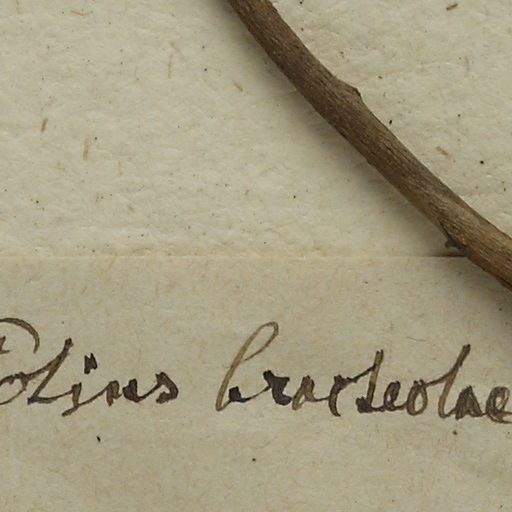 Potius bracteolae